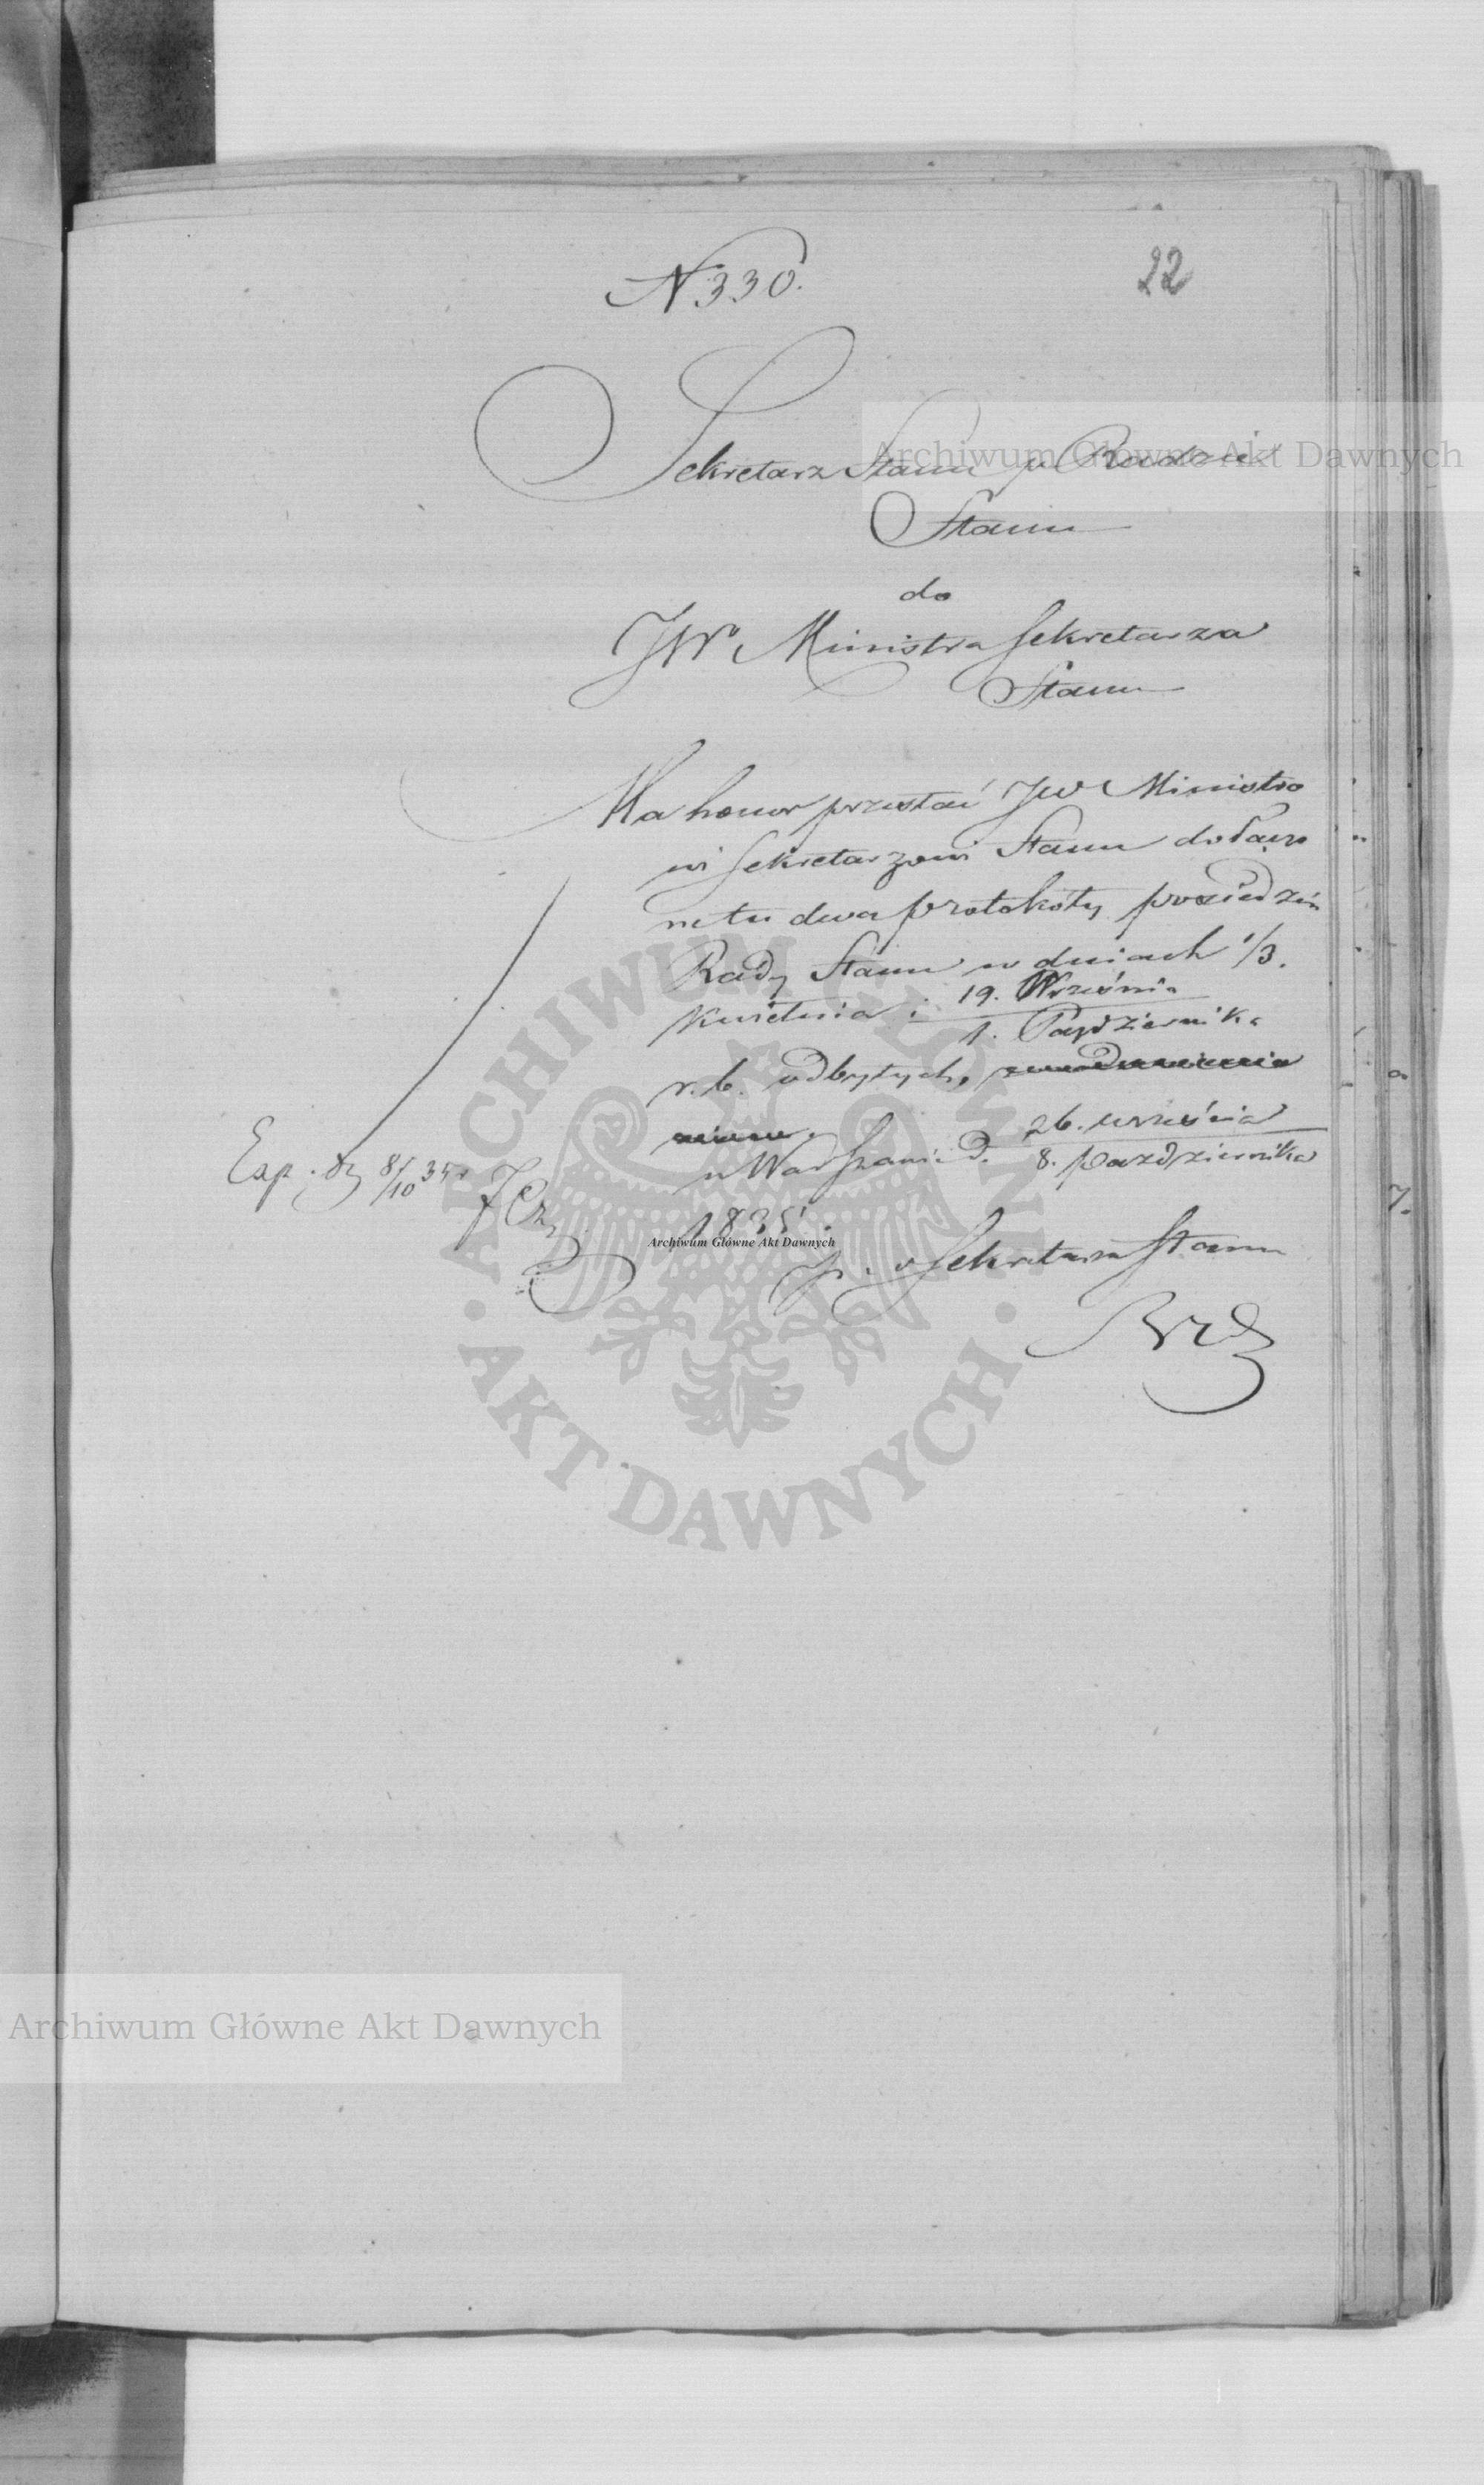 N 330.
22
Sekretarz Stanu w Radzie
Stanu
do
JW Ministra Sekretarza
Stanu
Ma honor przesłać JW Ministro
wi Sekretarzowi Stanu dołączo
ne tu dwa protokóły posiedzeń
Rady Stanu w dniach 1/3.
Kwietnia i 19. Września
1. Października
r. b. odbytych,
w Warszawie d. 26. września
8. października
1835.
Exp. d 8/10 35 r
p. o Sekretarza Stanu
Archiwum Główne Akt Dawnych
Archiwum Główne Akt Dawnych
Archiwum Główne Akt Dawnych
ARCHIWUM GŁÓWNE · AKT DAWNYCH ·